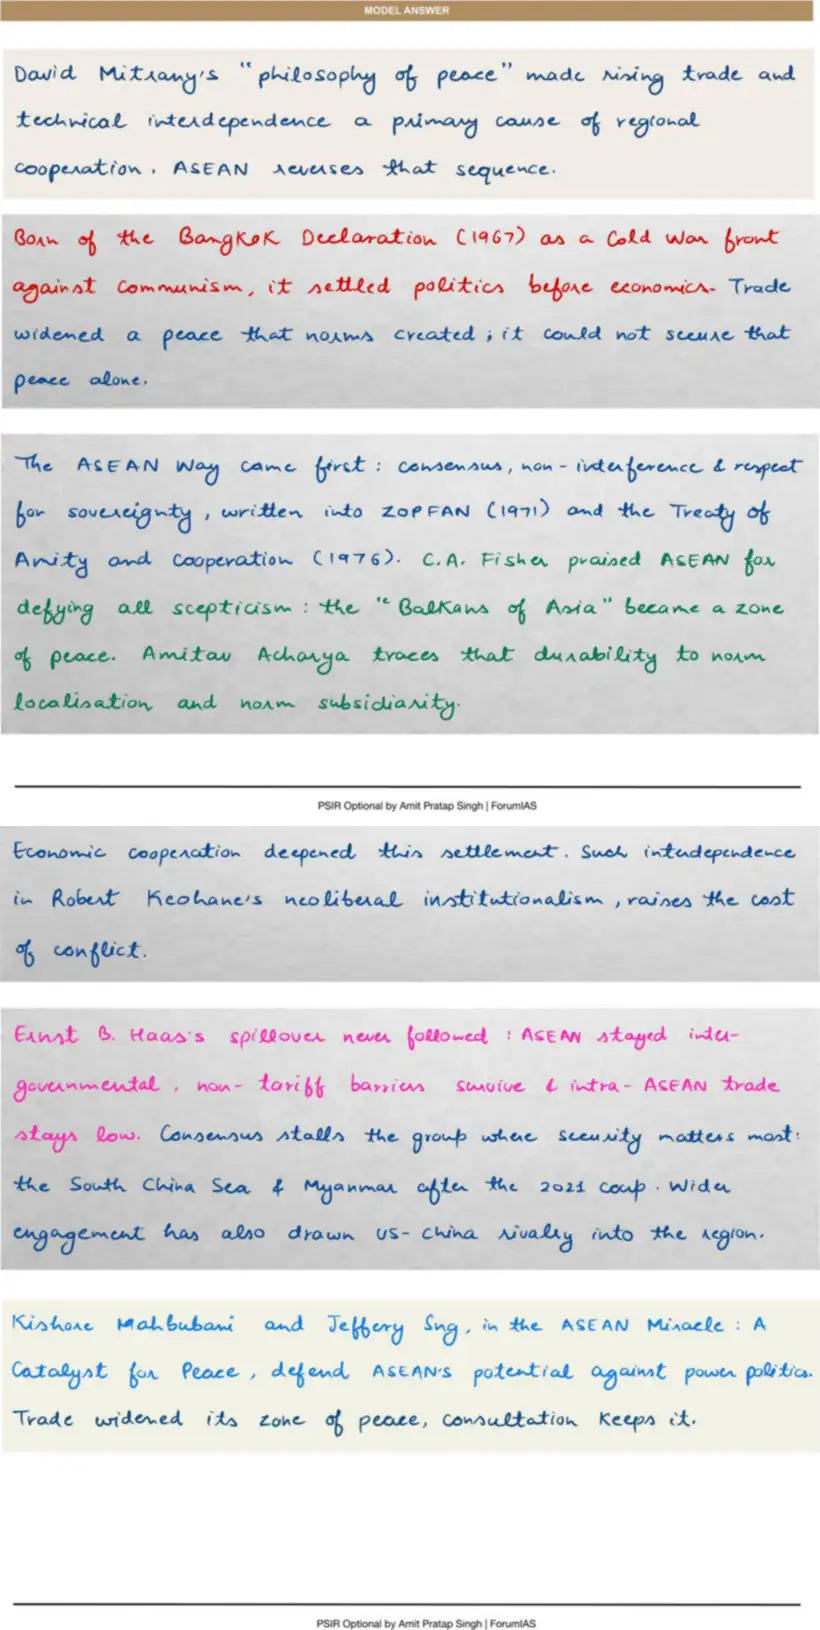 MODEL ANSWER
David Mitrany's "philosophy of peace" made rising trade and
technical interdependence a primary cause of regional
cooperation. ASEAN reverses that sequence.
Born of the Bangkok Declaration (1967) as a Cold War front
against communism, it settled politics before economics. Trade
widened a peace that norms created; it could not secure that
peace alone.
The ASEAN Way came first: consensus, non-interference & respect
for sovereignty, written into ZOPFAN (1971) and the Treaty of
Amity and Cooperation (1976). C.A. Fisher praised ASEAN for
defying all scepticism: the "Balkans of Asia" became a zone
of peace. Amitav Acharya traces that durability to norm
localisation and norm subsidiarity.
PSIR Optional by Amit Pratap Singh | ForumIAS
Economic cooperation deepened this settlement. Such interdependence
in Robert Keohane's neoliberal institutionalism, raises the cost
of conflict.
Ernst B. Haas's spillover never followed: ASEAN stayed inter-
governmental, non-tariff barriers survive & intra-ASEAN trade
stays low. Consensus stalls the group where security matters most:
the South China Sea & Myanmar after the 2021 coup. Wider
engagement has also drawn US-China rivalry into the region.
Kishore Mahbubani and Jeffery Sng, in the ASEAN Miracle: A
Catalyst for Peace, defend ASEAN's potential against power politics.
Trade widened its zone of peace, consultation keeps it.
PSIR Optional by Amit Pratap Singh | ForumIAS